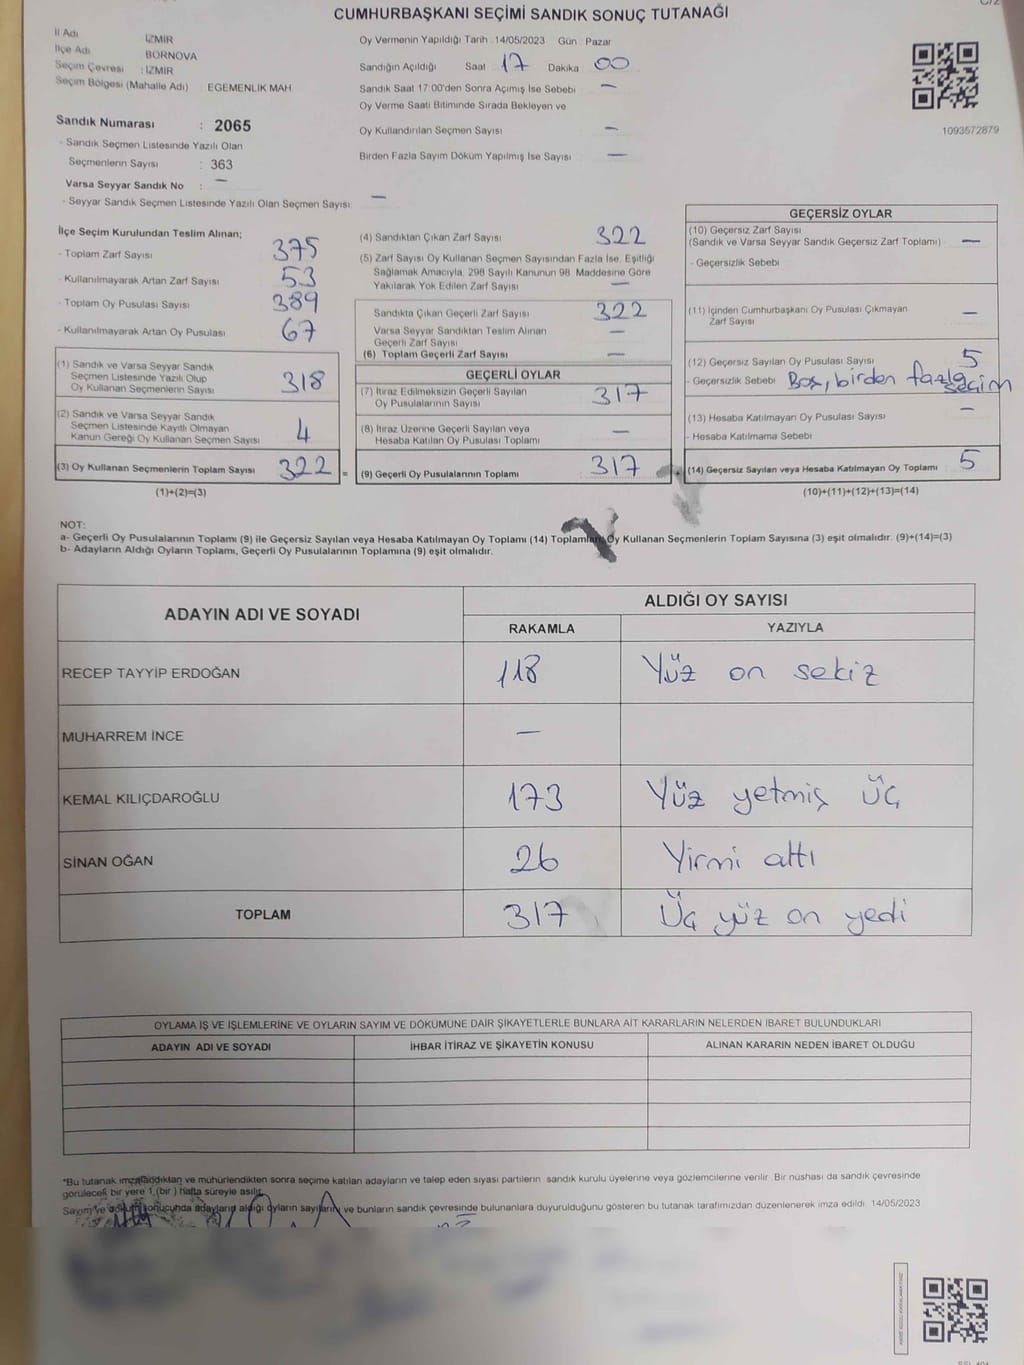 CUMHURBAŞKANI SEÇİMİ SANDIK SONUÇ TUTANAĞI
İl Adı İZMİR
İlçe Adı BORNOVA
Seçim Çevresi : İZMİR
Seçim Bölgesi (Mahalle Adı) EGEMENLİK MAH
Sandık Numarası : 2065
- Sandık Seçmen Listesinde Yazılı Olan
Seçmenlerin Sayısı : 363
Varsa Seyyar Sandık No : —
- Seyyar Sandık Seçmen Listesinde Yazılı Olan Seçmen Sayısı —
Oy Vermenin Yapıldığı Tarih : 14/05/2023 Gün : Pazar
Sandığın Açıldığı Saat 17 Dakika 00
Sandık Saat 17:00'den Sonra Açımış İse Sebebi —
Oy Verme Saati Bitiminde Sırada Bekleyen ve
Oy Kullandırılan Seçmen Sayısı —
Birden Fazla Sayım Döküm Yapılmış İse Sayısı —
1093572879
İlçe Seçim Kurulundan Teslim Alınan;
- Toplam Zarf Sayısı 375
- Kullanılmayarak Artan Zarf Sayısı 53
- Toplam Oy Pusulası Sayısı 389
- Kullanılmayarak Artan Oy Pusulası 67
(1) Sandık ve Varsa Seyyar Sandık
Seçmen Listesinde Yazılı Olup
Oy Kullanan Seçmenlerin Sayısı 318
(2) Sandık ve Varsa Seyyar Sandık
Seçmen Listesinde Kayıtlı Olmayan
Kanun Gereği Oy Kullanan Seçmen Sayısı 4
(3) Oy Kullanan Seçmenlerin Toplam Sayısı 322 =
(1)+(2)=(3)
(4) Sandıktan Çıkan Zarf Sayısı 322
(5) Zarf Sayısı Oy Kullanan Seçmen Sayısından Fazla İse, Eşitliği
Sağlamak Amacıyla, 298 Sayılı Kanunun 98. Maddesine Göre
Yakılarak Yok Edilen Zarf Sayısı —
Sandıkta Çıkan Geçerli Zarf Sayısı 322
Varsa Seyyar Sandıktan Teslim Alınan
Geçerli Zarf Sayısı —
(6) Toplam Geçerli Zarf Sayısı —
GEÇERLİ OYLAR
(7) İtiraz Edilmeksizin Geçerli Sayılan
Oy Pusulalarının Sayısı 317
(8) İtiraz Üzerine Geçerli Sayılan veya
Hesaba Katılan Oy Pusulası Toplamı —
(9) Geçerli Oy Pusulalarının Toplamı 317 +
GEÇERSİZ OYLAR
(10) Geçersiz Zarf Sayısı
(Sandık ve Varsa Seyyar Sandık Geçersiz Zarf Toplamı) —
- Geçersizlik Sebebi
(11) İçinden Cumhurbaşkanı Oy Pusulası Çıkmayan
Zarf Sayısı —
(12) Geçersiz Sayılan Oy Pusulası Sayısı 5
- Geçersizlik Sebebi Boş, birden fazla seçim
(13) Hesaba Katılmayan Oy Pusulası Sayısı —
- Hesaba Katılmama Sebebi
(14) Geçersiz Sayılan veya Hesaba Katılmayan Oy Toplamı 5
(10)+(11)+(12)+(13)=(14)
NOT:
a- Geçerli Oy Pusulalarının Toplamı (9) ile Geçersiz Sayılan veya Hesaba Katılmayan Oy Toplamı (14) Toplamları Oy Kullanan Seçmenlerin Toplam Sayısına (3) eşit olmalıdır. (9)+(14)=(3)
b- Adayların Aldığı Oyların Toplamı, Geçerli Oy Pusulalarının Toplamına (9) eşit olmalıdır.
ADAYIN ADI VE SOYADI ALDIĞI OY SAYISI
RAKAMLA YAZIYLA
RECEP TAYYİP ERDOĞAN 118 Yüz on sekiz
MUHARREM İNCE —
KEMAL KILIÇDAROĞLU 173 Yüz yetmiş üç
SİNAN OĞAN 26 Yirmi altı
TOPLAM 317 Üç yüz on yedi
OYLAMA İŞ VE İŞLEMLERİNE VE OYLARIN SAYIM VE DÖKÜMÜNE DAİR ŞİKAYETLERLE BUNLARA AİT KARARLARIN NELERDEN İBARET BULUNDUKLARI
ADAYIN ADI VE SOYADI İHBAR İTİRAZ VE ŞİKAYETİN KONUSU ALINAN KARARIN NEDEN İBARET OLDUĞU
*Bu tutanak imzalandıktan ve mühürlendikten sonra seçime katılan adayların ve talep eden siyasi partilerin sandık kurulu üyelerine veya gözlemcilerine verilir. Bir nüshası da sandık çevresinde
görülecek bir yere 1 (bir) hafta süreyle asılır.
Sayım ve döküm sonucunda adayların aldığı oyların sayılarını ve bunların sandık çevresinde bulunanlara duyurulduğunu gösteren bu tutanak tarafımızdan düzenlenerek imza edildi. 14/05/2023